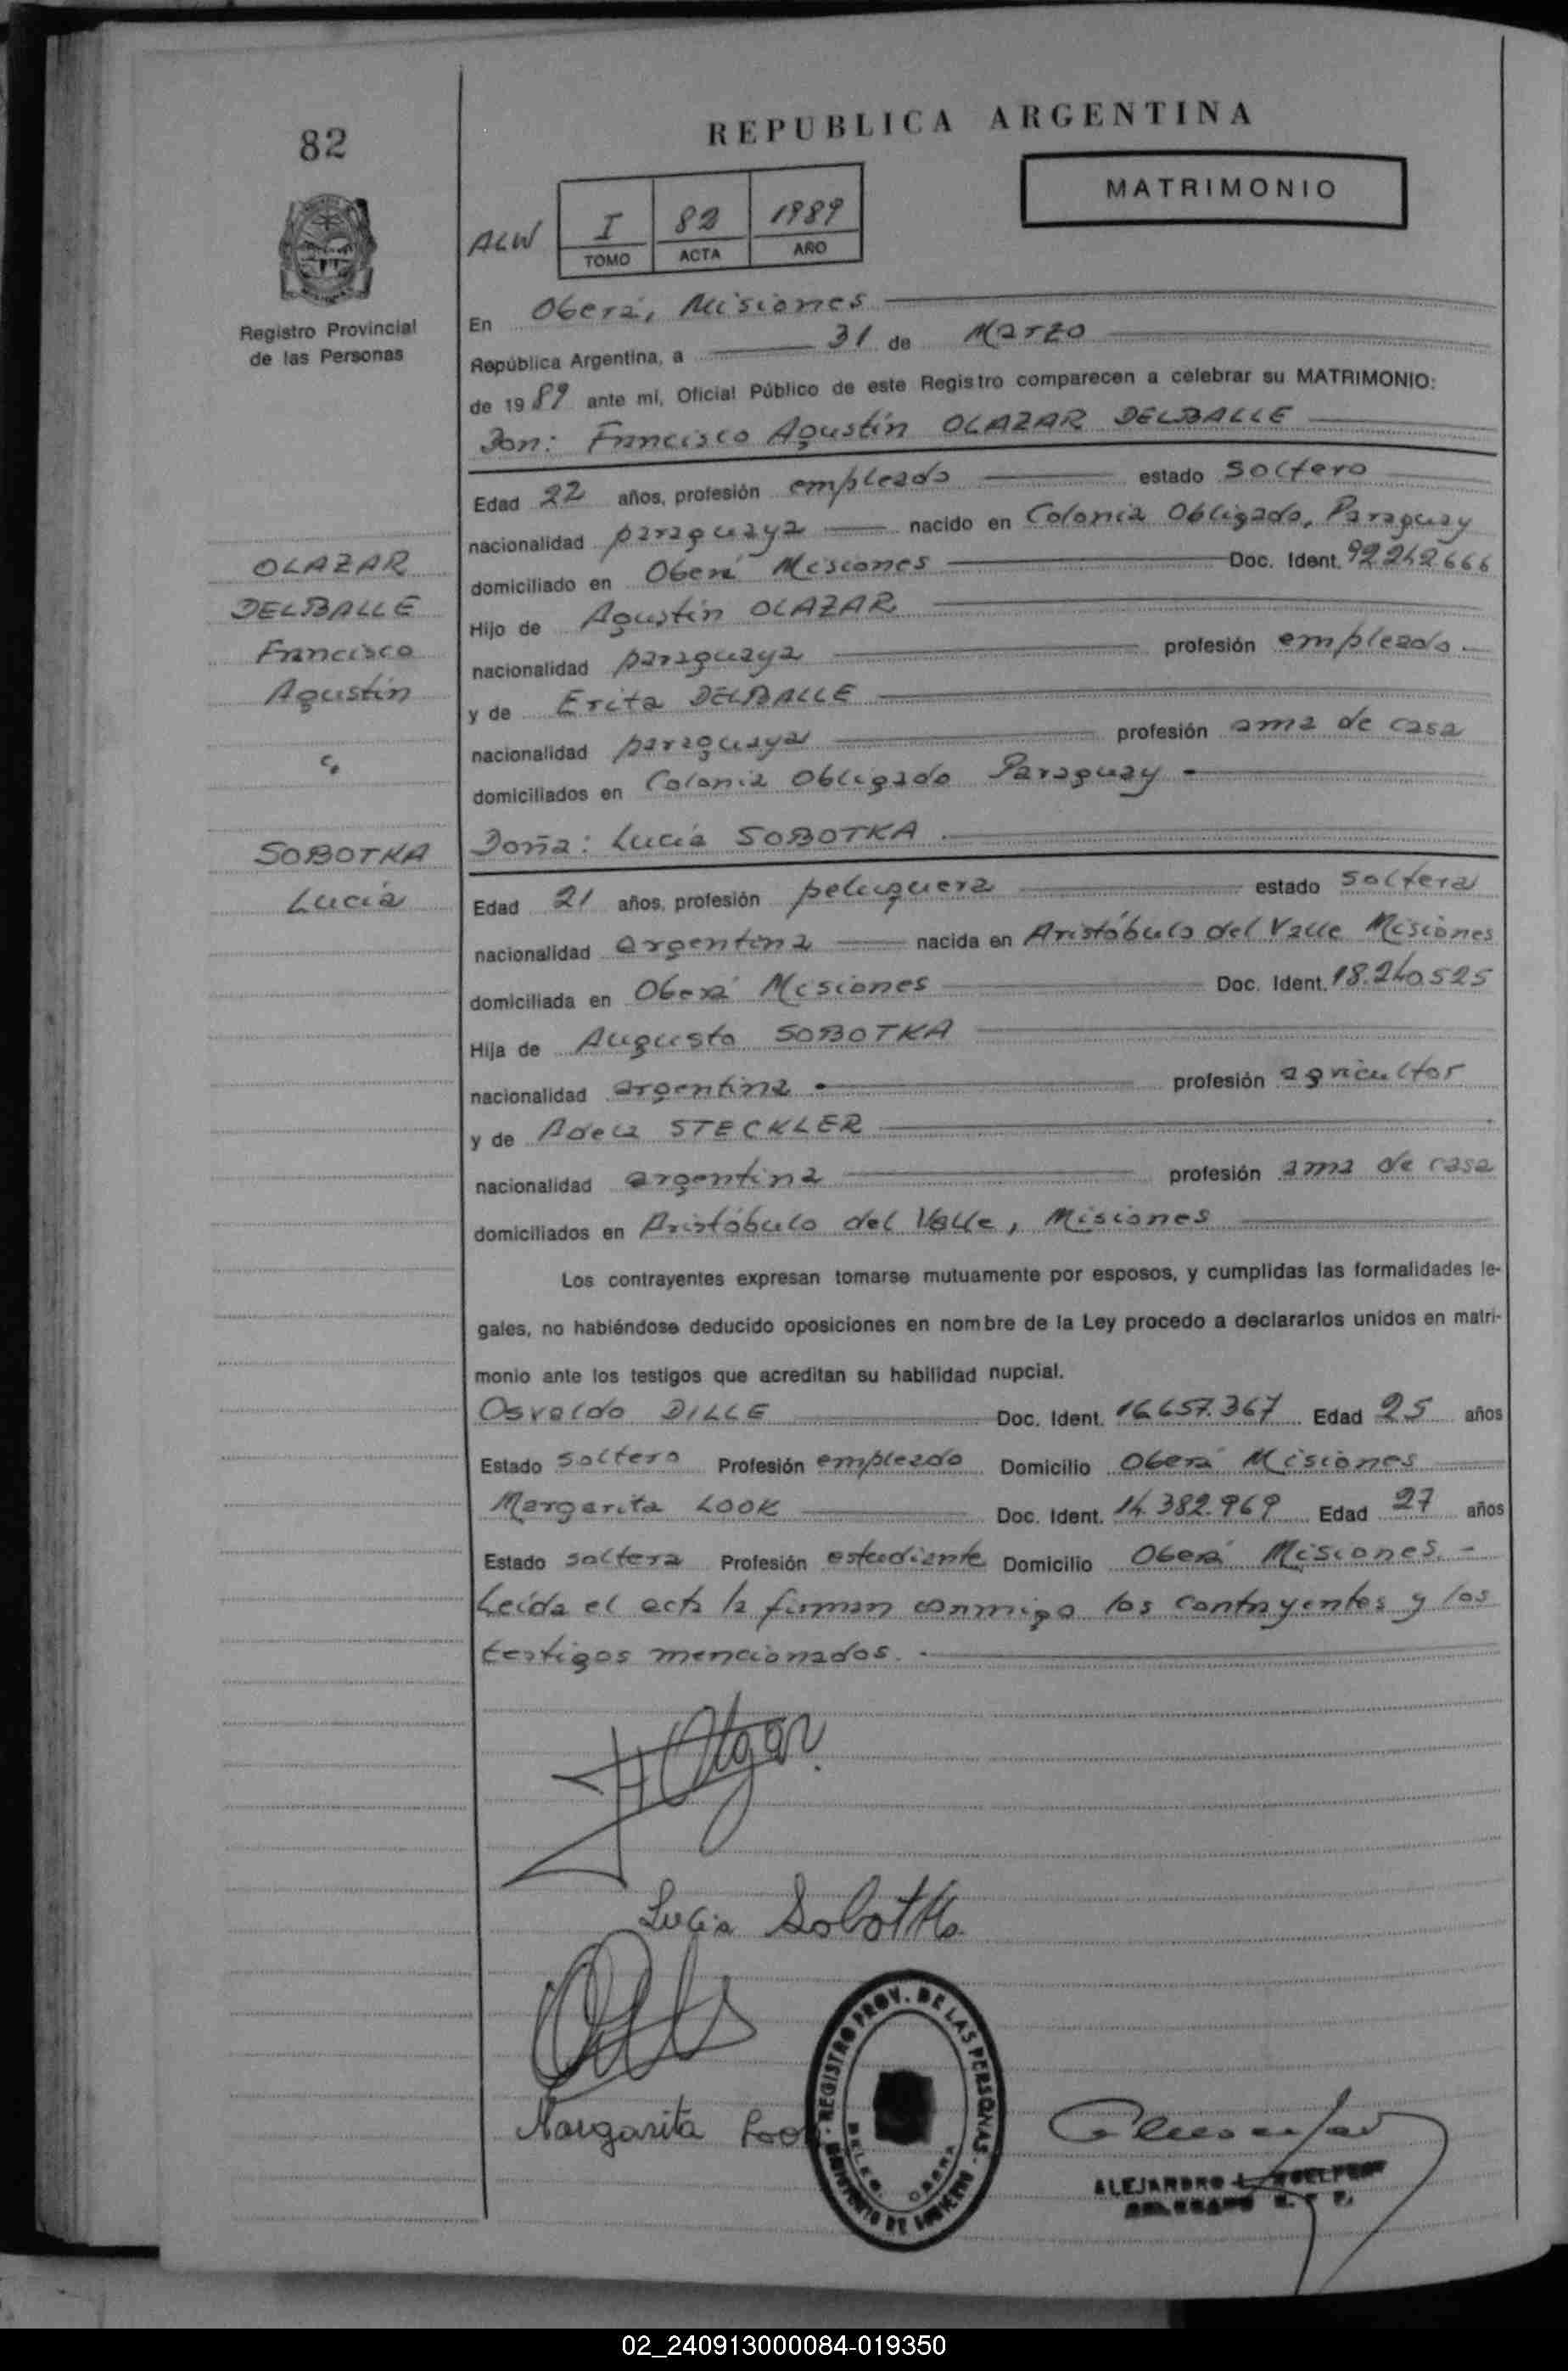 82
REPUBLICA ARGENTINA
MATRIMONIO
ALW
I 82 1989
TOMO ACTA AÑO
Registro Provincial
de las Personas
En Oberá, Misiones
República Argentina, a 31 de Marzo
de 1989 ante mí, Oficial Público de este Registro comparecen a celebrar su MATRIMONIO:
Don: Francisco Agustín OLAZAR DELBALLE
Edad 22 años, profesión empleado estado soltero
nacionalidad paraguaya nacido en Colonia Obligado, Paraguay
domiciliado en Oberá Misiones Doc. Ident. 92242666
Hijo de Agustín OLAZAR
nacionalidad paraguaya profesión empleado
y de Erita DELBALLE
nacionalidad paraguaya profesión ama de casa
domiciliados en Colonia Obligado Paraguay
OLAZAR
DELBALLE
Francisco
Agustín
c,
SOBOTKA
Lucía
Doña: Lucía SOBOTKA
Edad 21 años, profesión peluquera estado soltera
nacionalidad argentina nacida en Aristóbulo del Valle Misiones
domiciliada en Oberá Misiones Doc. Ident. 18.240.525
Hija de Augusto SOBOTKA
nacionalidad argentina profesión agricultor
y de Adela STECKLER
nacionalidad argentina profesión ama de casa
domiciliados en Aristóbulo del Valle, Misiones
Los contrayentes expresan tomarse mutuamente por esposos, y cumplidas las formalidades le-
gales, no habiéndose deducido oposiciones en nombre de la Ley procedo a declararlos unidos en matri-
monio ante los testigos que acreditan su habilidad nupcial.
Osvaldo DILLE Doc. Ident. 16.657.367 Edad 25 años
Estado soltero Profesión empleado Domicilio Oberá Misiones
Margarita LOOK Doc. Ident. 14.382.969 Edad 27 años
Estado soltera Profesión estudiante Domicilio Oberá Misiones
Leída el acta la firman conmigo los contrayentes y los
testigos mencionados.
Lucia Sobotka
Margarita Look
REGISTRO PROV. DE LAS PERSONAS
MINISTERIO DE GOBIERNO
DELEG. OBERA
ALEJANDRO L.
02_240913000084-019350